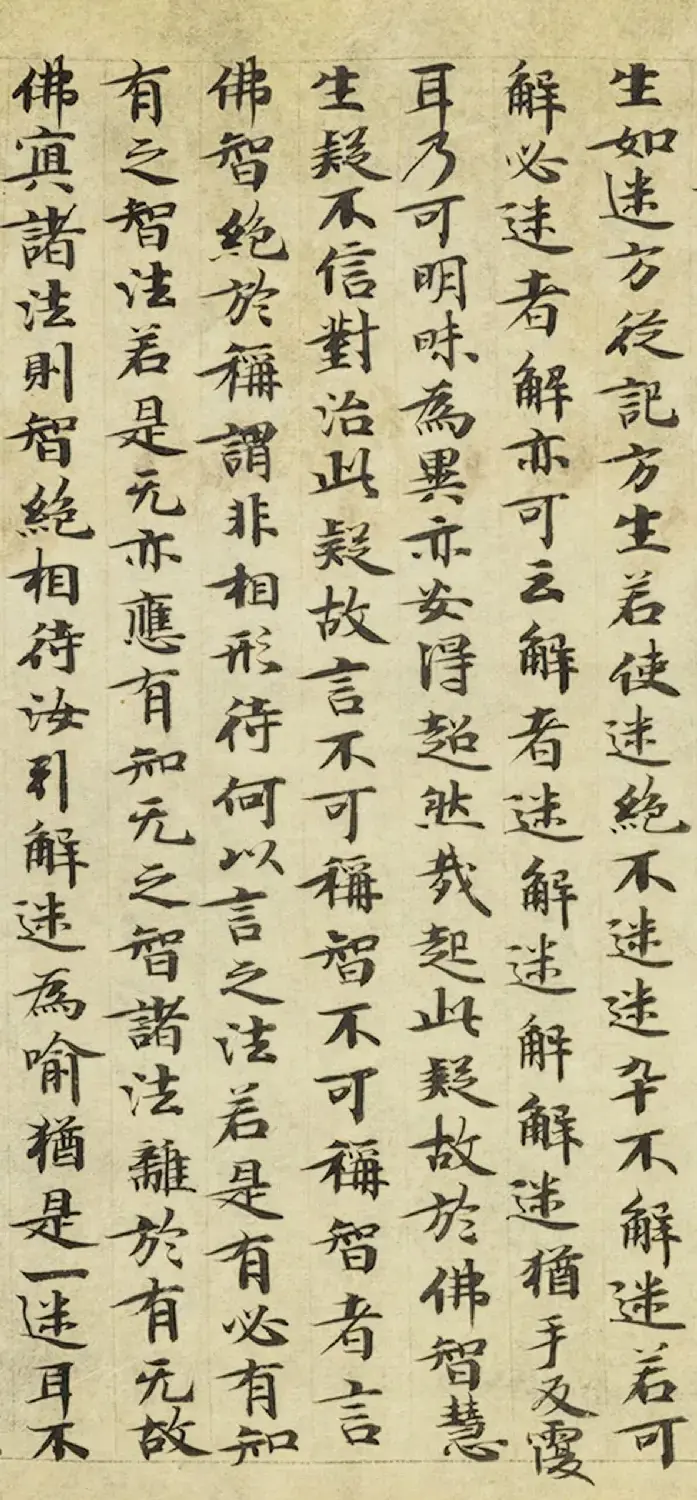 生如迷方従記方生若使迷絶不迷迷卆不解迷若可
解必迷者解亦可云解者迷解迷解解迷猶手反覆
耳乃可明昧為異亦安得超然哉起此疑故於佛智慧
生疑不信對治此疑故言不可稱智不可稱智者言
佛智絶於稱謂非相形待何以言之法若是有必有知
有之智法若是无亦應有知无之智諸法離於有无故
佛冥諸法則智絶相待汝引解迷為喻猶是一迷耳不